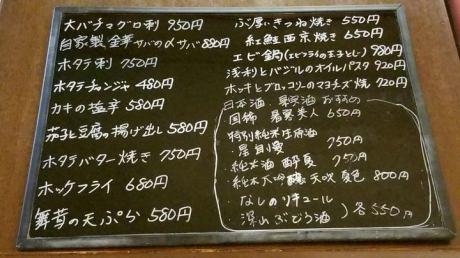 大バチマグロ刺 950円
自家製 金華サバの〆サバ 880円
ホタテ刺 750円
ホタテチャンジャ 480円
カキの塩辛 580円
茄子と豆腐の揚げ出し 580円
ホタテバター焼き 750円
ホッケフライ 680円
舞茸の天ぷら 580円
ぶ厚いきつね焼き 550円
紅鮭西京焼き 650円
エビ鍋(エビフライの玉子とじ) 980円
浅利とバジルのオイルパスタ 920円
ホッキとブロッコリーのマヨチーズ焼 720円
日本酒 果実酒 おすすめ
国稀 暑寒美人 650円
特別純米生原酒
750円
・純米酒 酔夏 750円
・純米大吟醸 天吹 夏色 800円
・なしのリキュール
・深山ぶどう酒 ) 各550円